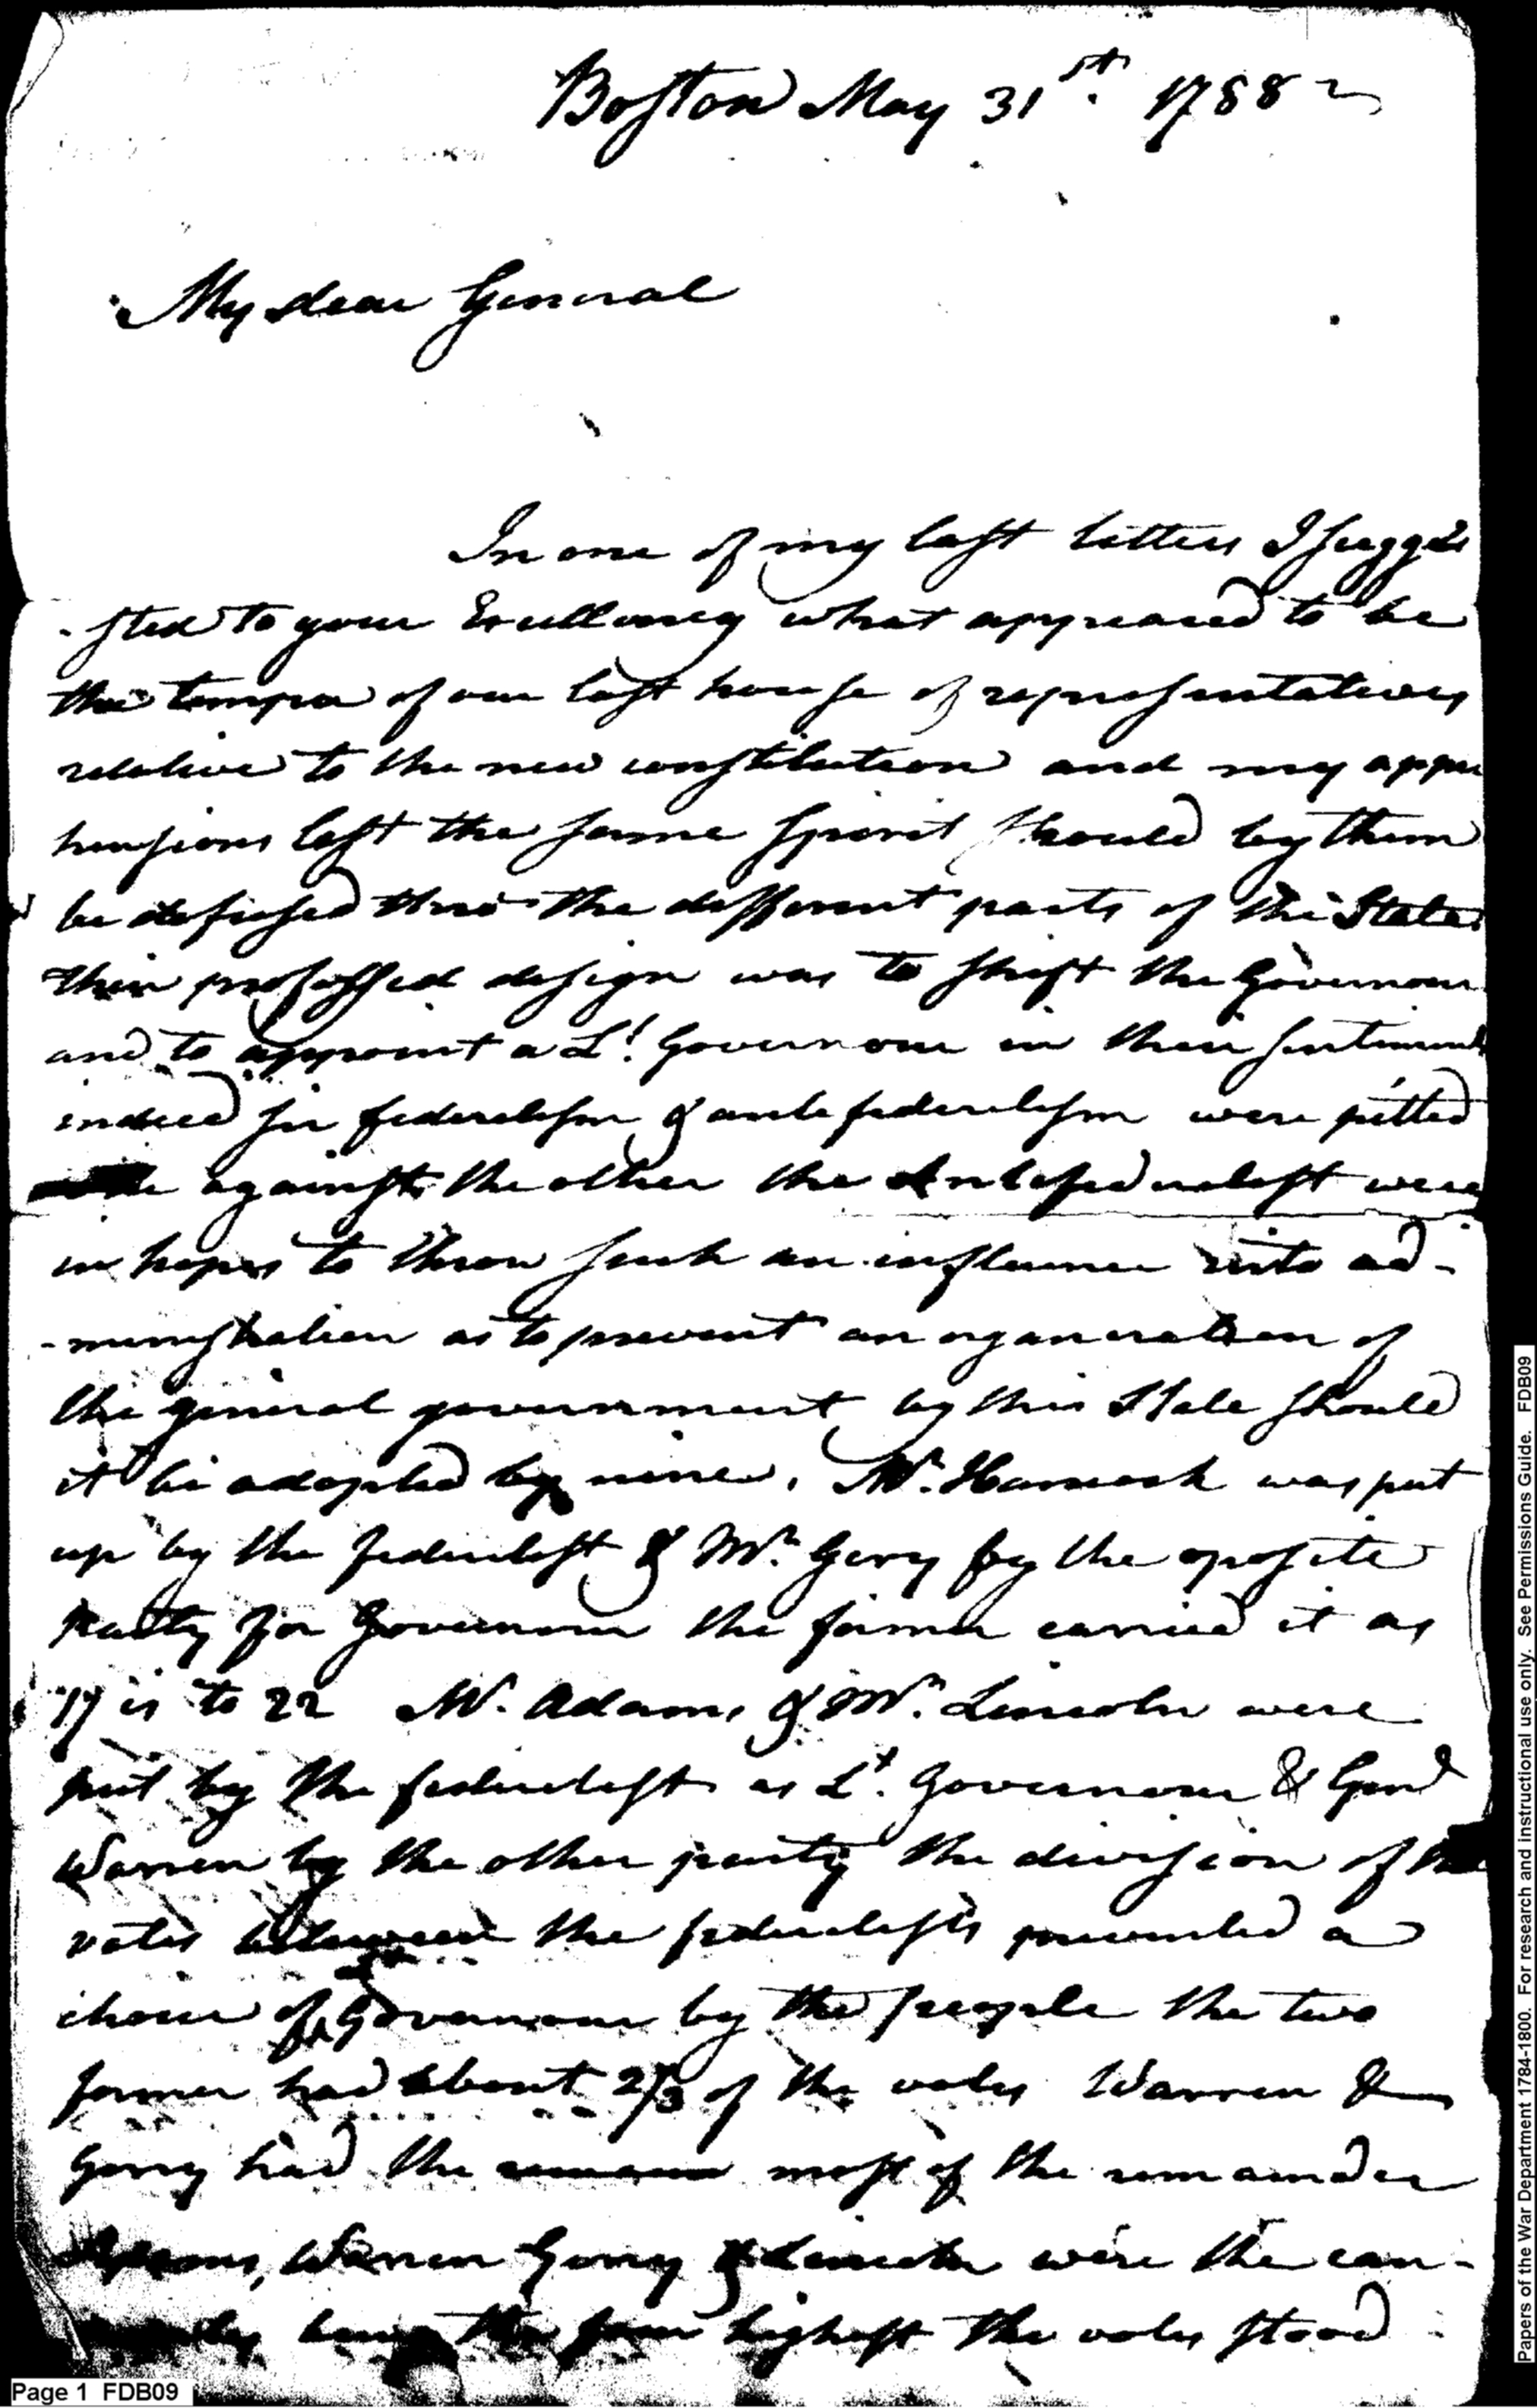 Boston May 31st. 1788
My dear General
In one of my last letters I sugge
-sted to your Excellency what appeared to be
the temper of our last house of representatives
relative to the new constitution and my appre
hensions lest the same spirit should by them
be defused thro the different parts of the State
their professed design was to shift the Governour
and to appoint a Lt. Governour in their sentiments
indeed federalism & antefederalism were pitted
against the other the Antefederalist were
in hopes to throw such an influence into ad-
-ministration as to prevent an organization of
the general government by this State should
it be adopted by nine. Mr. Hancock was put
up by the federalist & Mr. Gerry by the oposite
party for Governour the former carried it as
is to 22 Mr. Adams & Mr. Lincoln were
put by the federalist as Lt. Governour & Genl
Warren by the other party the division of the
votes between the federalists prevented a
choice of Lt Governour by the people the two
former had about 2/3 of the votes Warren &
Gerry had the most of the remainder
Adams, Warren Gerry & Lincoln were the can-
being the four highest the votes stood
Page 1 FDB09
Papers of the War Department 1784-1800. For research and instructional use only. See Permissions Guide. FDB09